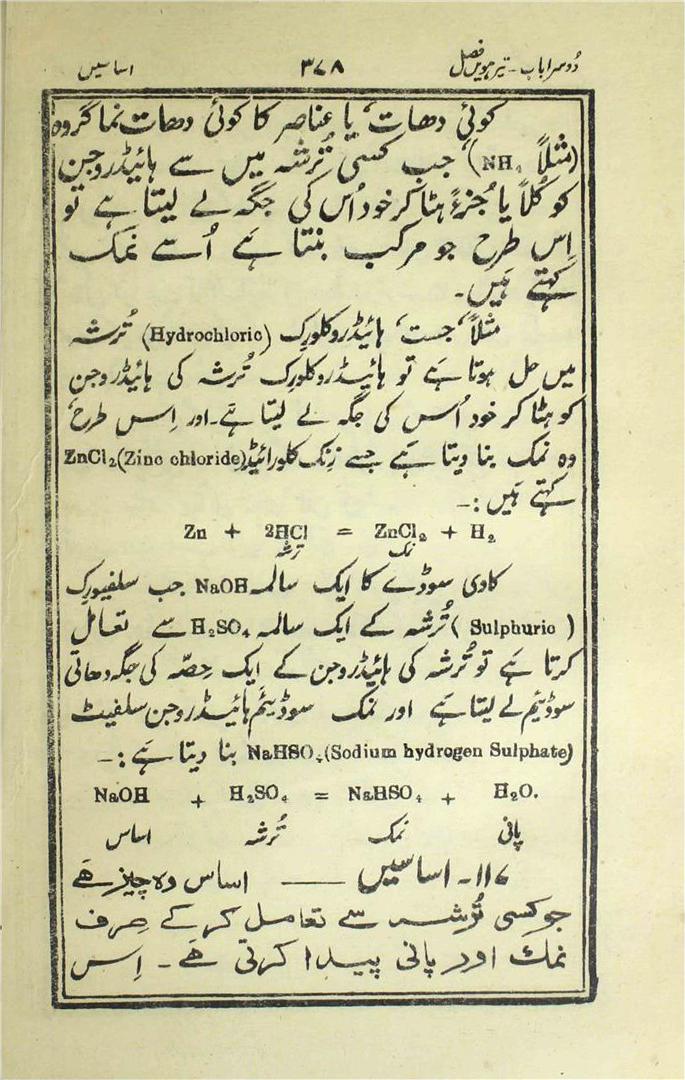 دُوسرا باب۔ تیرھویں فصل ۳۷۸ اساسیں
کوئی دھات، یا عناصر کا کوئی دھات نما گروہ
(مثلاً NH₄)، جب کسی تُرشہ میں سے ہائیڈروجن
کو کُلاً یا جُزءً ہٹا کر خود اُس کی جگہ لے لیتا ہے تو
اِس طرح جو مرکب بنتا ہے اُسے نمک
کہتے ہیں۔
مثلاً، جست، ہائیڈروکلورک (Hydrochloric) تُرشہ
میں حل ہوتا ہے تو ہائیڈروکلورک تُرشہ کی ہائیڈروجن
کو ہٹا کر خود اُس کی جگہ لے لیتا ہے۔ اور اِس طرح،
وہ نمک بنا دیتا ہے جسے زِنک کلورائیڈ ZnCl₂ (Zinc chloride)
کہتے ہیں :۔
Zn + 2HCl = ZnCl₂ + H₂
تُرشہ نمک
کاوی سوڈے کا ایک سالمہ NaOH جب سلفیورک
(Sulphuric) تُرشہ کے ایک سالمہ H₂SO₄ سے تعامل
کرتا ہے تو تُرشہ کی ہائیڈروجن کے ایک حِصّہ کی جگہ دھاتی
سوڈیئم لے لیتا ہے اور نمک سوڈیئم ہائیڈروجن سلفیٹ
NaHSO₄ (Sodium hydrogen Sulphate) بنا دیتا ہے :۔
NaOH + H₂SO₄ = NaHSO₄ + H₂O.
اساس تُرشہ نمک پانی
۱۱۷۔ اساسیں —— اساس وہ چیز ہے
جو کسی تُرشہ سے تعامل کر کے صِرف
نمک اور پانی پیدا کرتی ہے۔ اِس